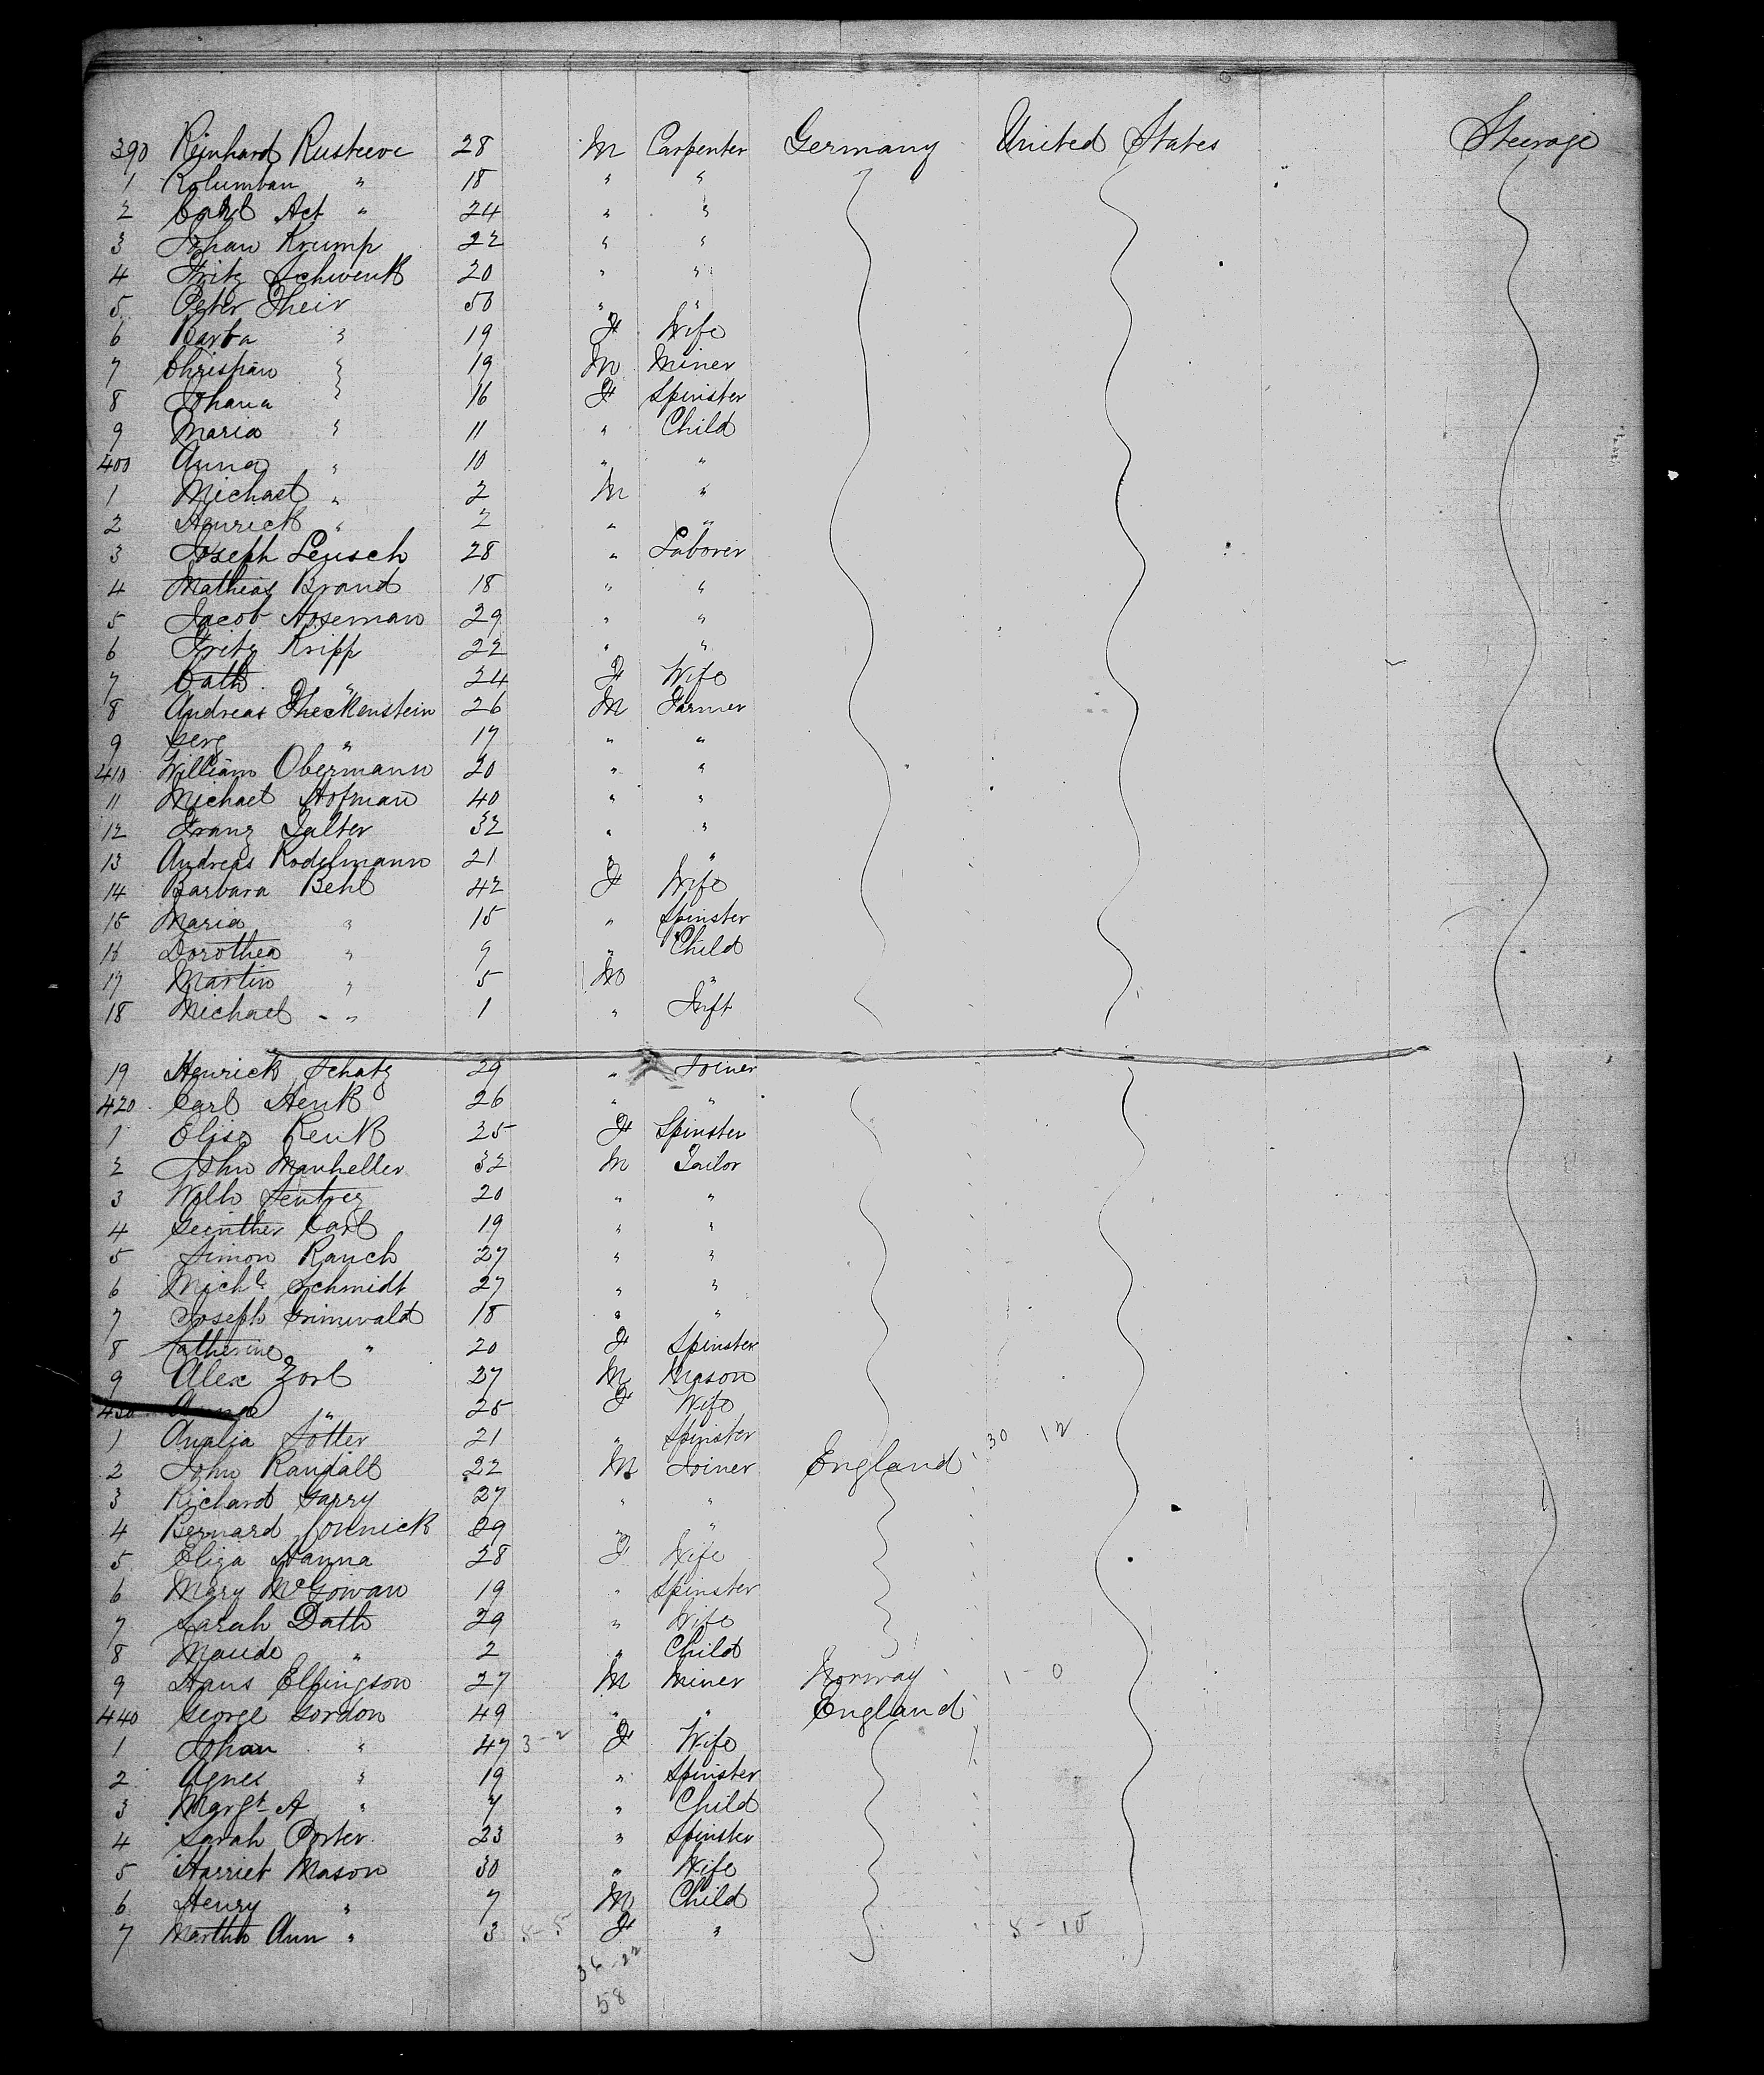 390 Reinhard Rusteeve 28 M Carpenter Germany United States Steerage
1 Kolumban " 18 " "
2 Carl Act " 24 " "
3 Johan Krump 22 " "
4 Fritz Schwenk 20 " "
5 Peter Their 50 " "
6 Barba " 19 F Wife
7 Christian " 19 M Miner
8 Johana " 16 F Spinster
9 Maria " 11 " Child
400 Anna " 10 " "
1 Michael " 2 M "
2 Henrick " 2 " "
3 Joseph Leusch 28 " Laborer
4 Mathias Brand 18 " "
5 Jacob Hoseman 29 " "
6 Fritz Kripp 22 " "
7 Cath " 24 F Wife
8 Andreas Theckenstein 26 M Farmer
9 Serg " 17 " "
410 William Obermann 20 " "
11 Michael Hofman 40 " "
12 Franz Salter 32 " "
13 Andreas Rodelmann 21 " "
14 Barbara Behl 42 F Wife
15 Maria " 15 " Spinster
16 Dorothea " 9 " Child
17 Martin " 5 M "
18 Michael " 1 " Inft
19 Henrick Schatz 29 " Joiner
420 Carl Henk 26 " "
1 Elise Renk 25 F Spinster
2 John Manheller 32 M Tailor
3 Wilh 20 " "
4 Geinther Carl 19 " "
5 Simon Rauch 27 " "
6 Michl Schmidt 27 " "
7 Joseph Grimwald 18 " "
8 Catherine " 20 F Spinster
9 Alex Zorl 27 M Mason
430 Anna " 25 F Wife
1 Analia Sotter 21 " Spinster 30 12
2 John Randall 22 M Joiner England
3 Richard Garry 27 " "
4 Bernard Connick 29 " "
5 Eliza Hanna 28 F Wife
6 Mary McGowan 19 " Spinster
7 Sarah Dath 29 " Wife
8 Maude " 2 " Child
9 Hans Elfingson 27 M Miner Norway 1-0
440 George Gordon 49 " " England
1 Johan " 47 3-2 F Wife
2 Agnes " 19 " Spinster
3 Margt A " 7 " Child
4 Sarah Porter 23 " Spinster
5 Harriet Mason 30 " Wife
6 Henry " 7 M Child
7 Martha Ann " 3 5-8 F " 5-10
36-22
58